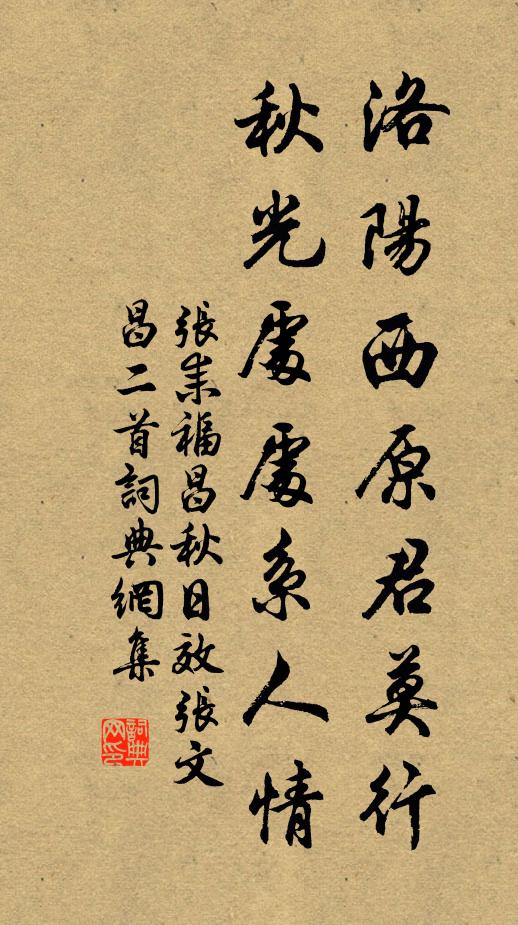 洛陽西原君莫行
秋光處處系人情
張耒福昌秋日效張文
昌二首詞典網集
詞典網印